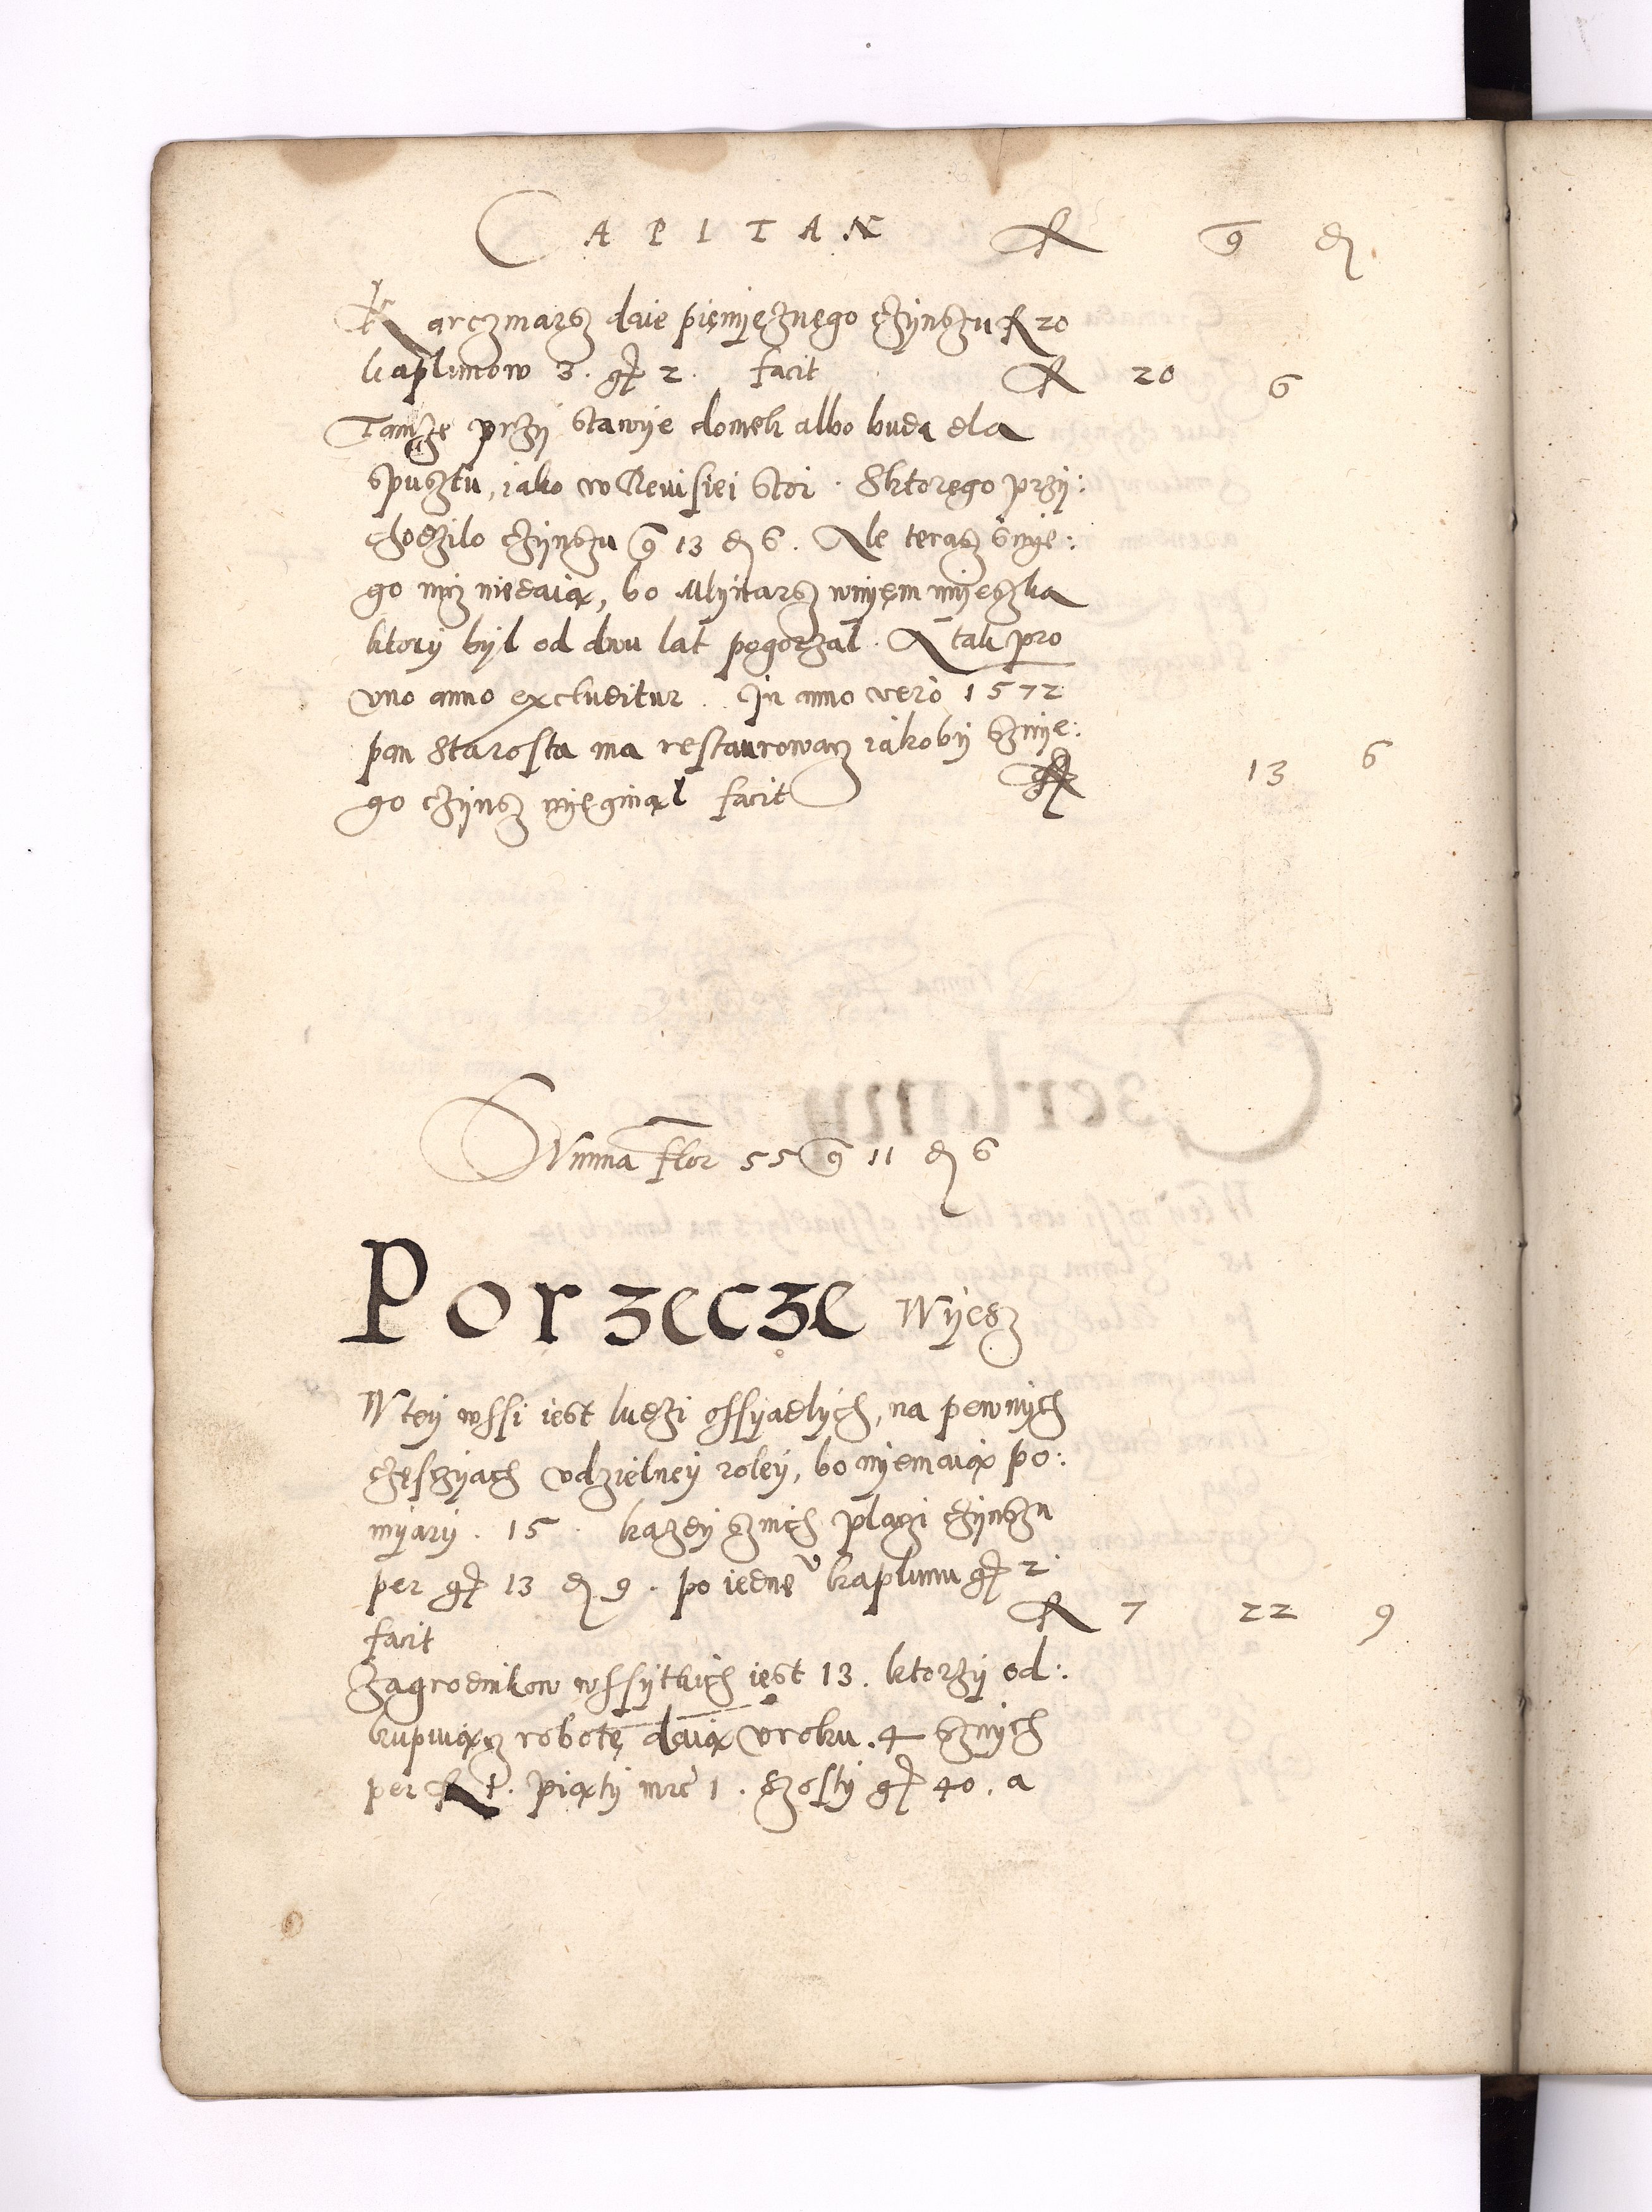 CAPITAN fl g d
Karczmarsz daie pięnyęznęgo cżynszu fl 20
kaplunow 3. gr 2. facit fl 20 6
Tamże przÿ Stawÿe domek albo buda dla
spusztu, iako w Reuisiei Stoi. Sktoręgo przÿ:
chodzilo cżÿnszu g 13 d 6. Ale terasz snÿe:
go nicz niedaią, bo Mlÿnarsz wnÿęm mÿeszka
ktorÿ bÿl od dwu lat pogorzal. A tak pro
vno anno excluditur. In anno vero 1572
pan Starosta ma restaurowacz iakobÿ sznÿe:
go cżÿnsz nÿęginąl facit fl 13 6
Summa flor 55 g 11 d 6
Porzecze Wÿesz
W teÿ wssi iest ludzi ossÿadlÿch, na pewnÿch
cżęsczÿach vdzielneÿ roleÿ, bo nÿemaią po:
mÿarÿ. 15. kazdÿ sznich placzi cżÿnszu
per gr 13 d 9. po iedne͞v kaplunu gr 2.
facit fl 7 22 9
Zagrodnikow wssÿtkich iest 13. ktorzÿ od:
kupuiącz robotę daią vroku. 4 sznÿch
per fl 1. piątÿ mrc 1. szostÿ gr 40. a